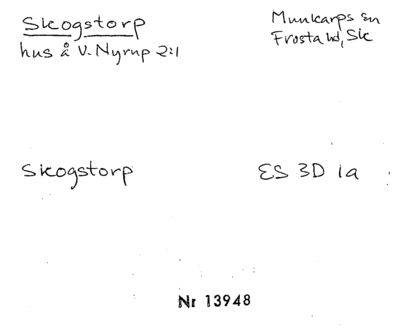 Skogstorp
hus å V. Nyrup 2:1
Munkarps sn
Frosta hd, Sk
Skogstorp
ES 3D 1a
Nr 13948